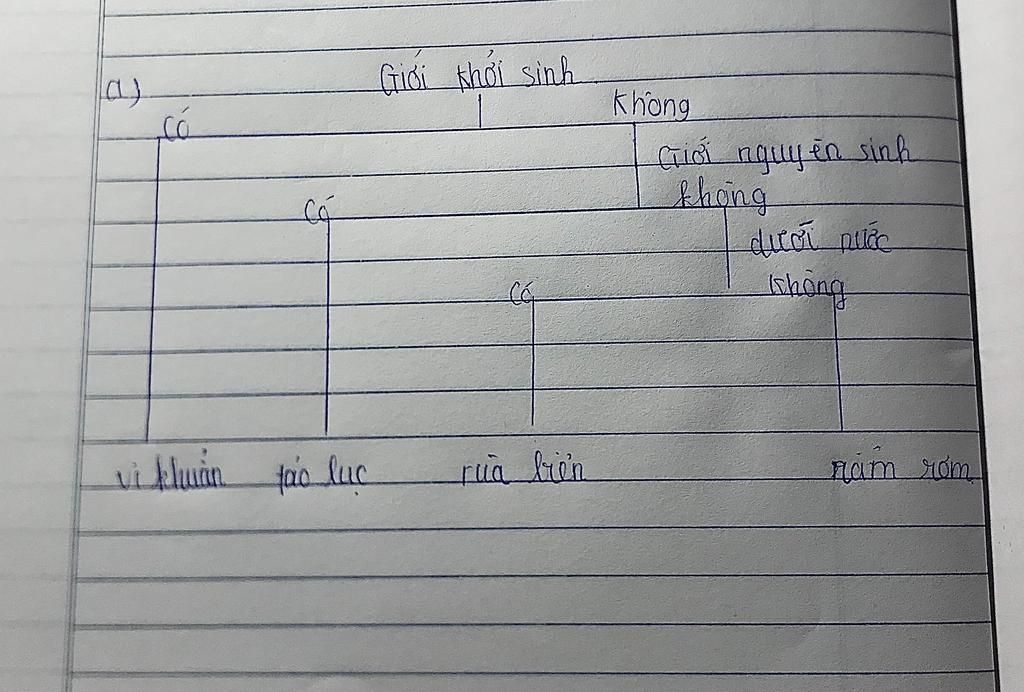 a) Giới khởi sinh
Có Không
Giới nguyên sinh
Có không
dưới nước
Có không
vi khuẩn tảo lục rùa biển nấm rơm